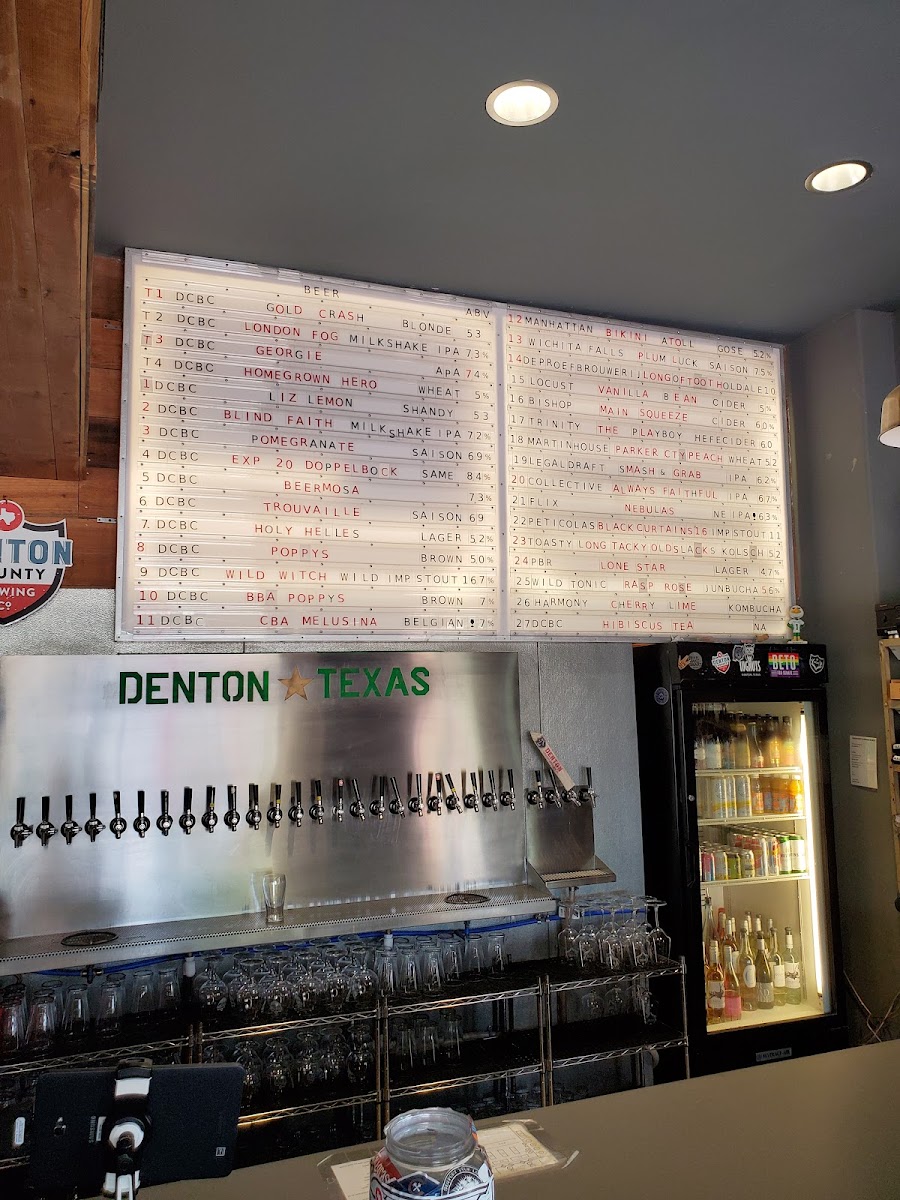 BEER
ABV
T1 DCBC GOLD CRASH BLONDE 53
T2 DCBC LONDON FOG MILKSHAKE IPA 73%
T3 DCBC GEORGIE APA 74%
T4 DCBC HOMEGROWN HERO WHEAT 5%
1 DCBC LIZ LEMON SHANDY 53
2 DCBC BLIND FAITH MILKSHAKE IPA 72%
3 DCBC POMEGRANATE SAISON 69%
4 DCBC EXP 20 DOPPELBOCK SAME 84%
5 DCBC BEERMOSA 73%
6 DCBC TROUVAILLE SAISON 69
7 DCBC HOLY HELLES LAGER 52%
8 DCBC POPPYS BROWN 50%
9 DCBC WILD WITCH WILD IMP STOUT 167%
10 DCBC BBA POPPYS BROWN 7%
11 DCBC CBA MELUSINA BELGIAN! 7%
12 MANHATTAN BIKINI ATOLL GOSE 52%
13 WICHITA FALLS PLUM LUCK SAISON 75%
14 DEPROEFBROUWERIJ LONGOFTOOTH OLDALE 10
15 LOCUST VANILLA BEAN CIDER 5%
16 BISHOP MAIN SQUEEZE CIDER 60%
17 TRINITY THE PLAYBOY HEFECIDER 60
18 MARTINHOUSE PARKER CTYPEACH WHEAT 52
19 LEGALDRAFT SMASH & GRAB IIPA 62%
20 COLLECTIVE ALWAYS FAITHFUL IIPA 67%
21 FLIX NEBULAS NE IPA! 63%
22 PETICOLAS BLACKCURTAINS16 IMPISTOUT 11
23 TOASTY LONG TACKY OLDSLACKS KOLSCH 52
24 PBR LONE STAR LAGER 47%
25 WILD TONIC RASP ROSE JUNBUCHA 56%
26 HARMONY CHERRY LIME KOMBUCHA
27 DCBC HIBISCUS TEA NA
DENTON
COUNTY
BREWING
CO
DENTON TEXAS
DENTON
BETO
BEVERAGE-AIR
SAMSUNG